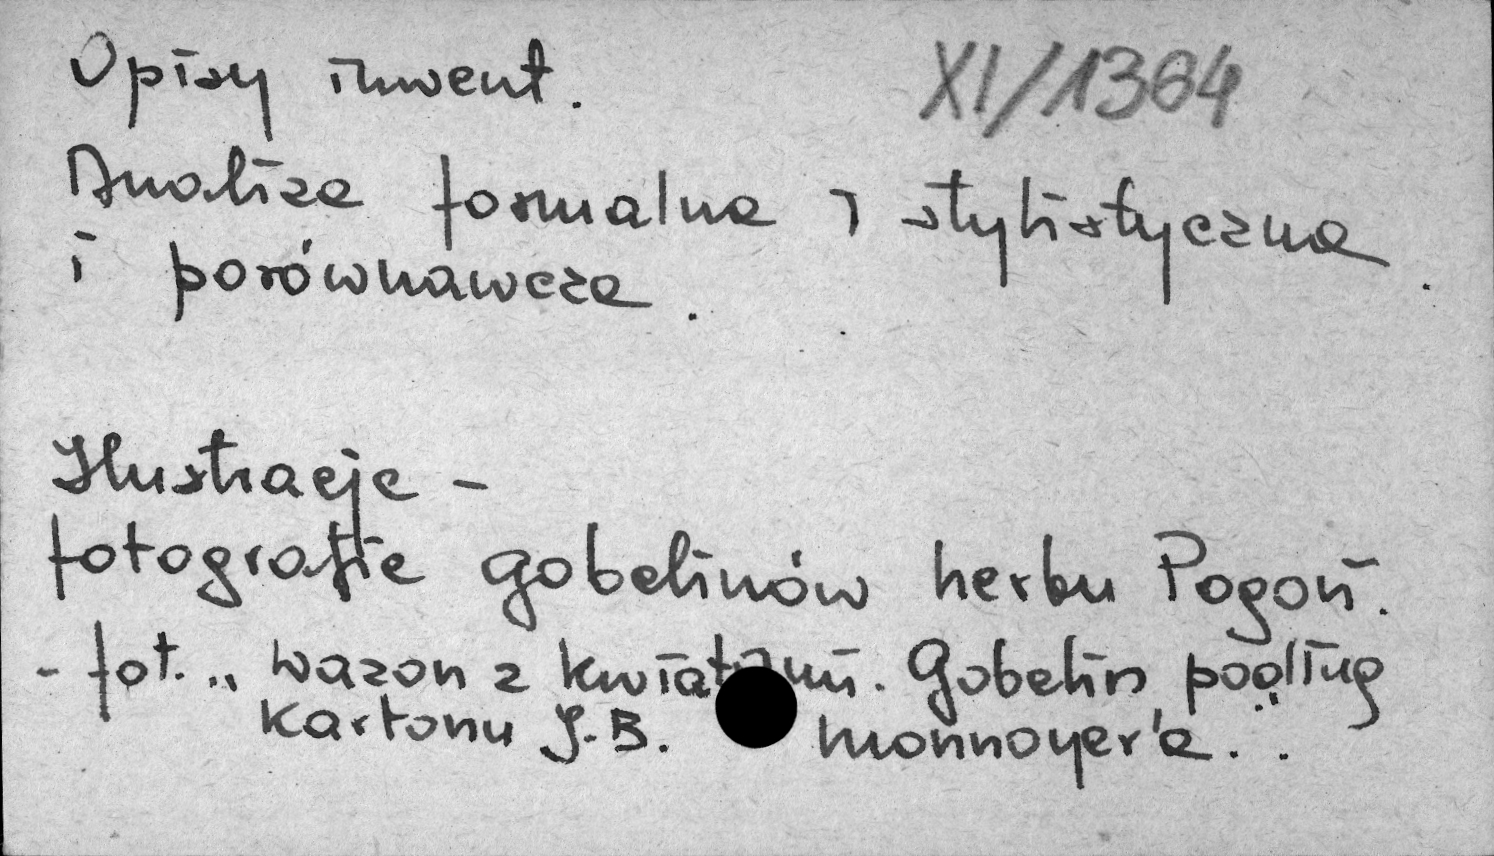 Opisy inwent. XI/1364
Analiza formalna i stylistyczna
i porównawcza.
Ilustracje -
fotografie gobelinów herbu Pogoń.
- fot. „ wazon z kwiatami. Gobelin podług
kartonu J.B. Monnoyer'a.